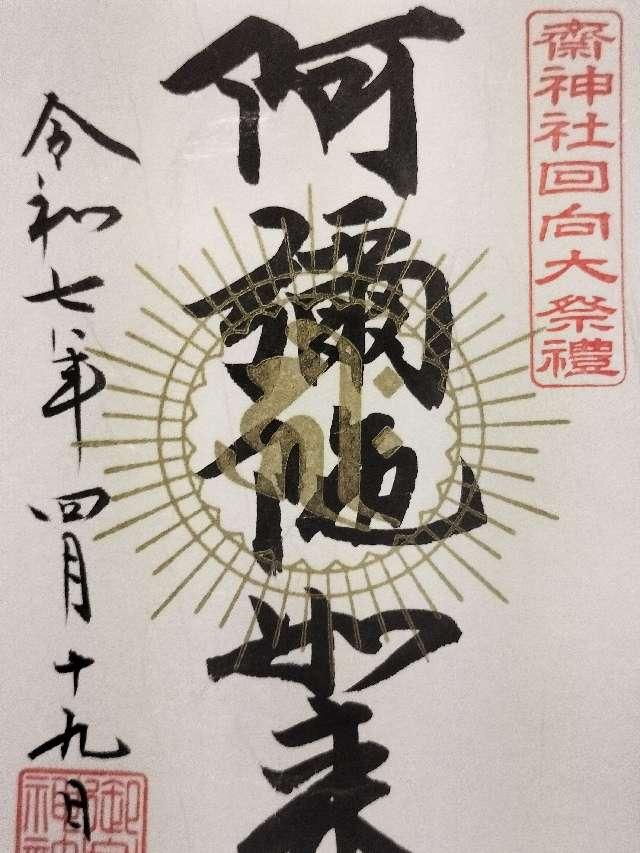 齋神社回向大祭禮
阿彌陀如来
令和七年四月十九日